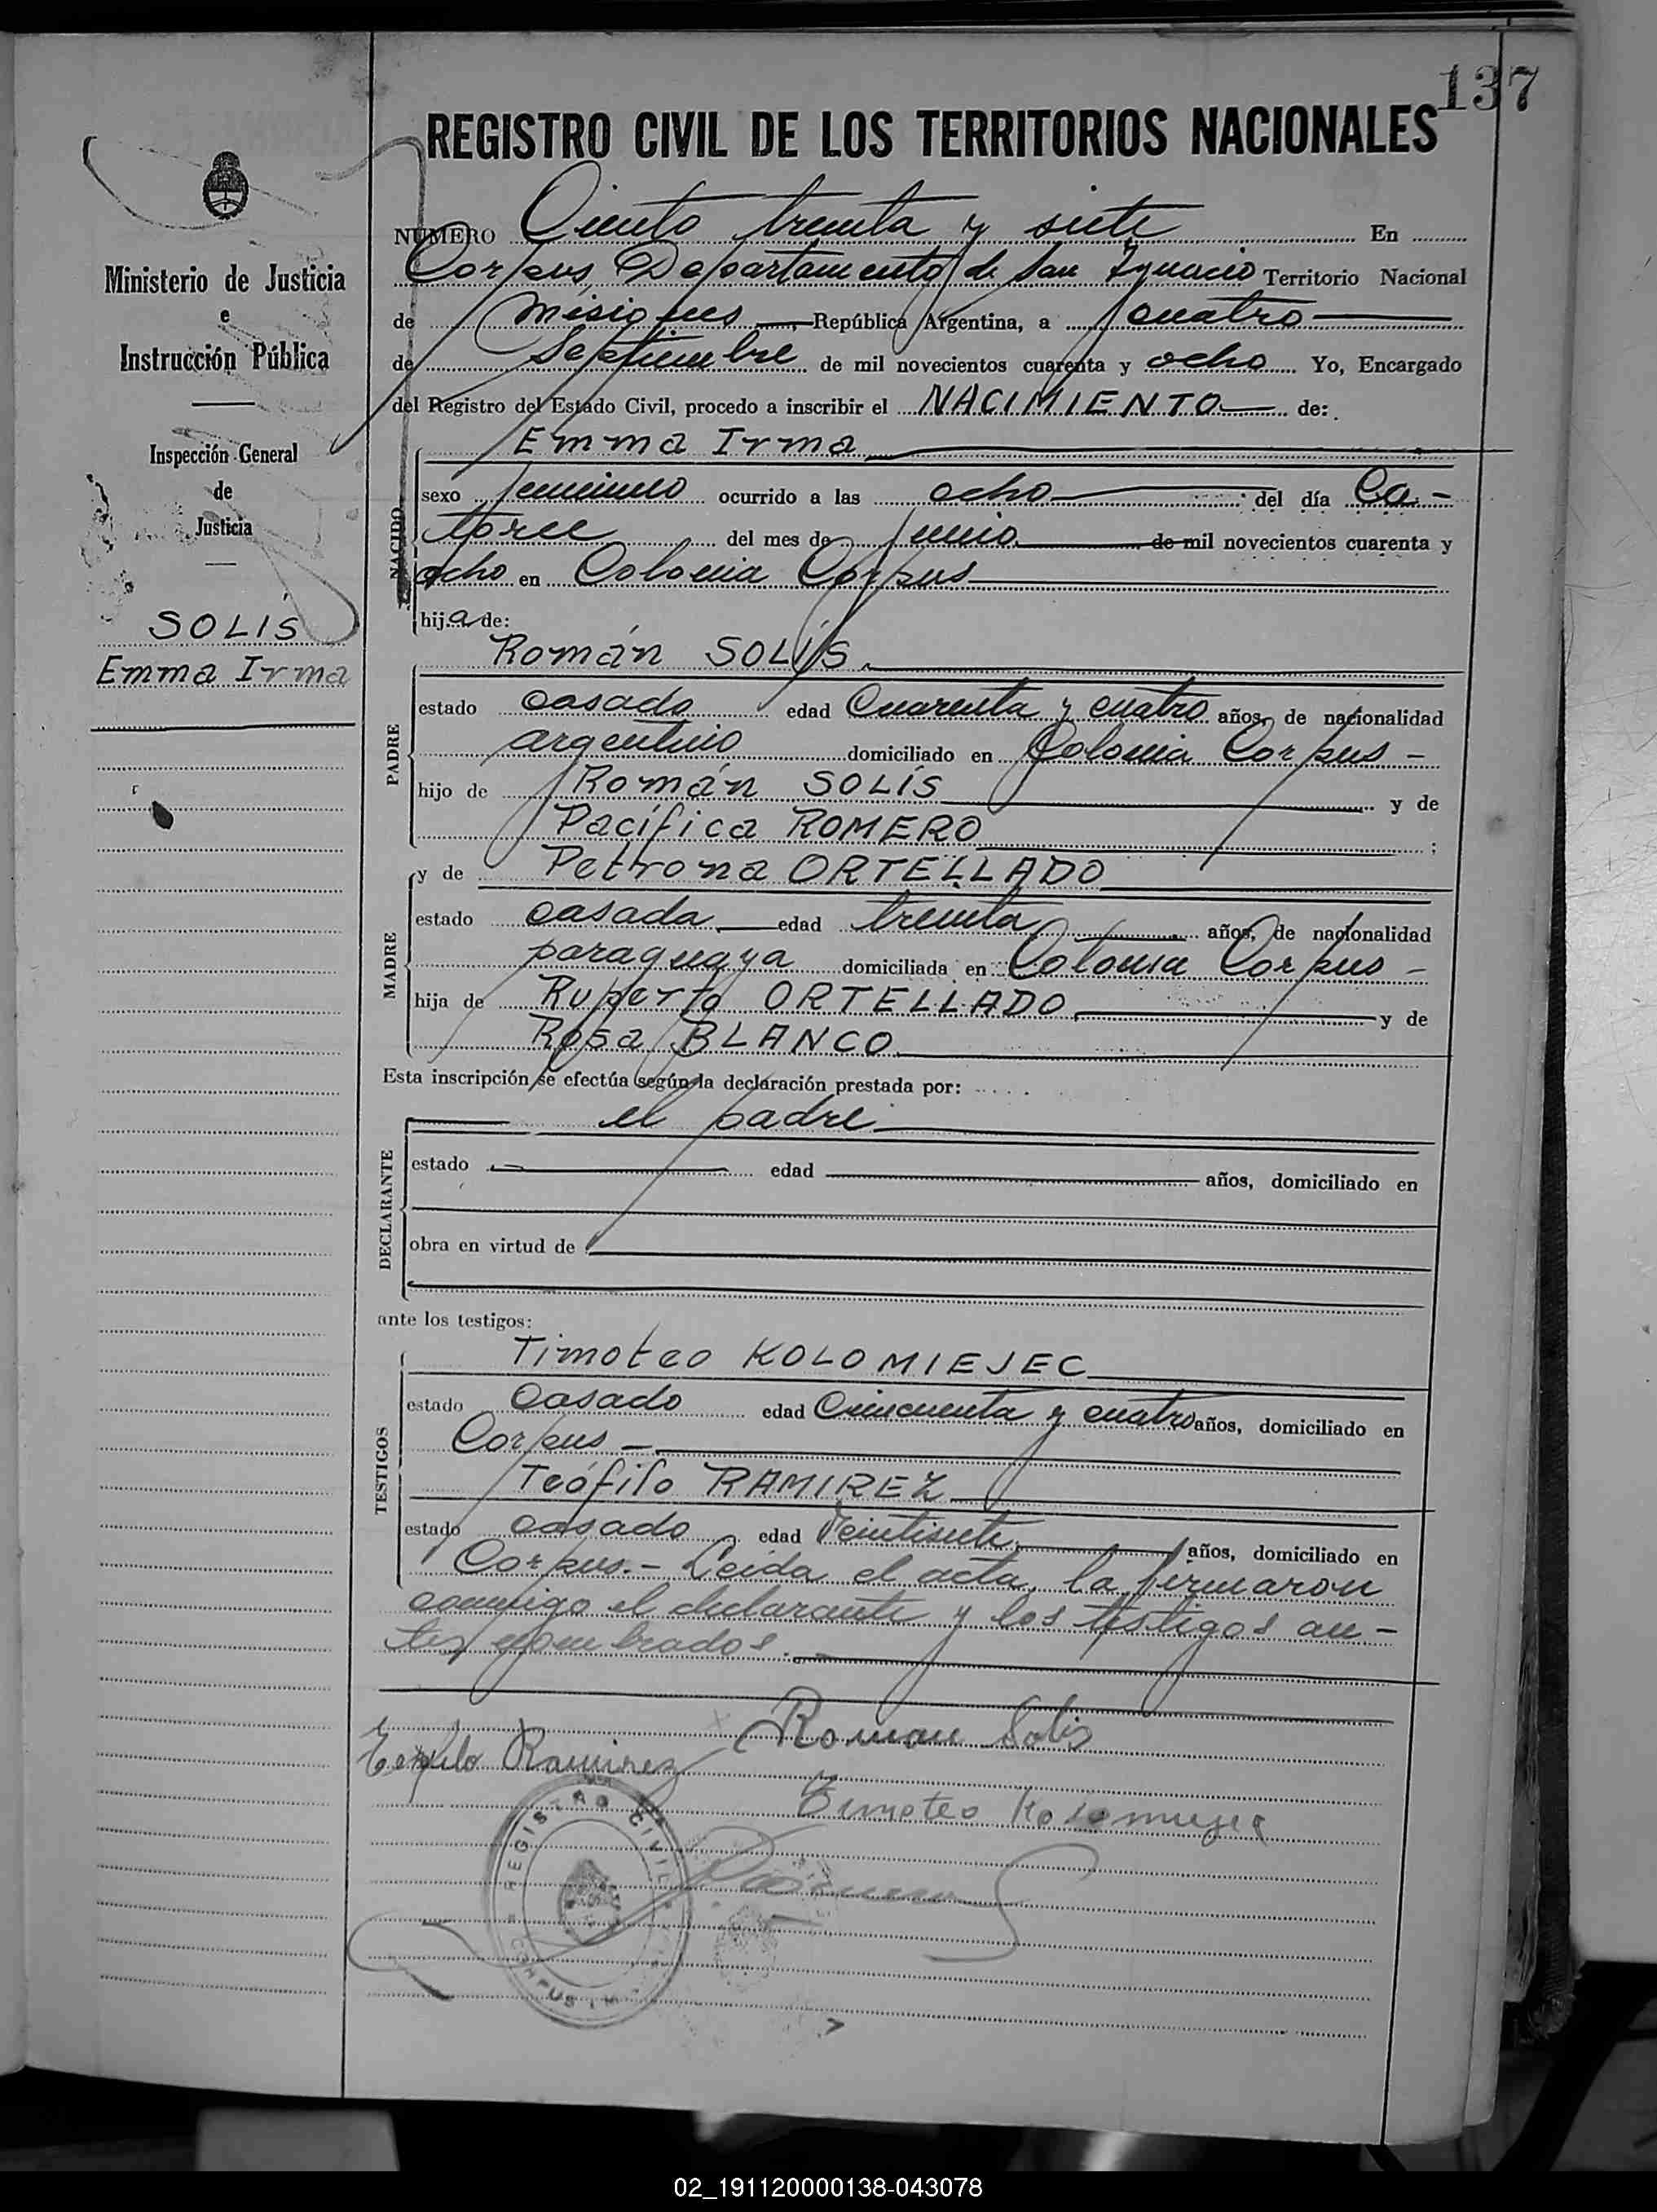 137
REGISTRO CIVIL DE LOS TERRITORIOS NACIONALES
NUMERO Ciento treinta y siete En
Corpus, Departamento de San Ygnacio Territorio Nacional
de Misiones, República Argentina, a cuatro
de Septiembre de mil novecientos cuarenta y ocho Yo, Encargado
del Registro del Estado Civil, procedo a inscribir el NACIMIENTO de:
Ministerio de Justicia
e
Instrucción Pública
Inspección General
de
Justicia
SOLIS
Emma Irma
NACIDO
Emma Irma
sexo femenino ocurrido a las ocho del día Ca-
torce del mes de junio de mil novecientos cuarenta y
ocho en Colonia Corpus
hija de:
PADRE
Román SOLÍS
estado casado edad Cuarenta y cuatro años, de nacionalidad
argentino domiciliado en Colonia Corpus -
hijo de Román SOLÍS y de
Pacífica ROMERO ;
MADRE
y de Petrona ORTELLADO
estado casada edad treinta años, de nacionalidad
paraguaya domiciliada en Colonia Corpus -
hija de Ruperto ORTELLADO y de
Rosa BLANCO
Esta inscripción se efectúa según la declaración prestada por:
DECLARANTE
el padre
estado edad años, domiciliado en
obra en virtud de
ante los testigos:
TESTIGOS
Timoteo KOLOMIEJEC
estado casado edad Cincuenta y cuatro años, domiciliado en
Corpus -
Teófilo RAMIREZ
estado casado edad Veintisiete años, domiciliado en
Corpus.- Leída el acta, la firmaron
conmigo el declarante y los testigos an-
tes nombrados.
Roman Solis
Teofilo Ramirez
Timoteo
REGISTRO CIVIL
CORPUS
02_191120000138-043078